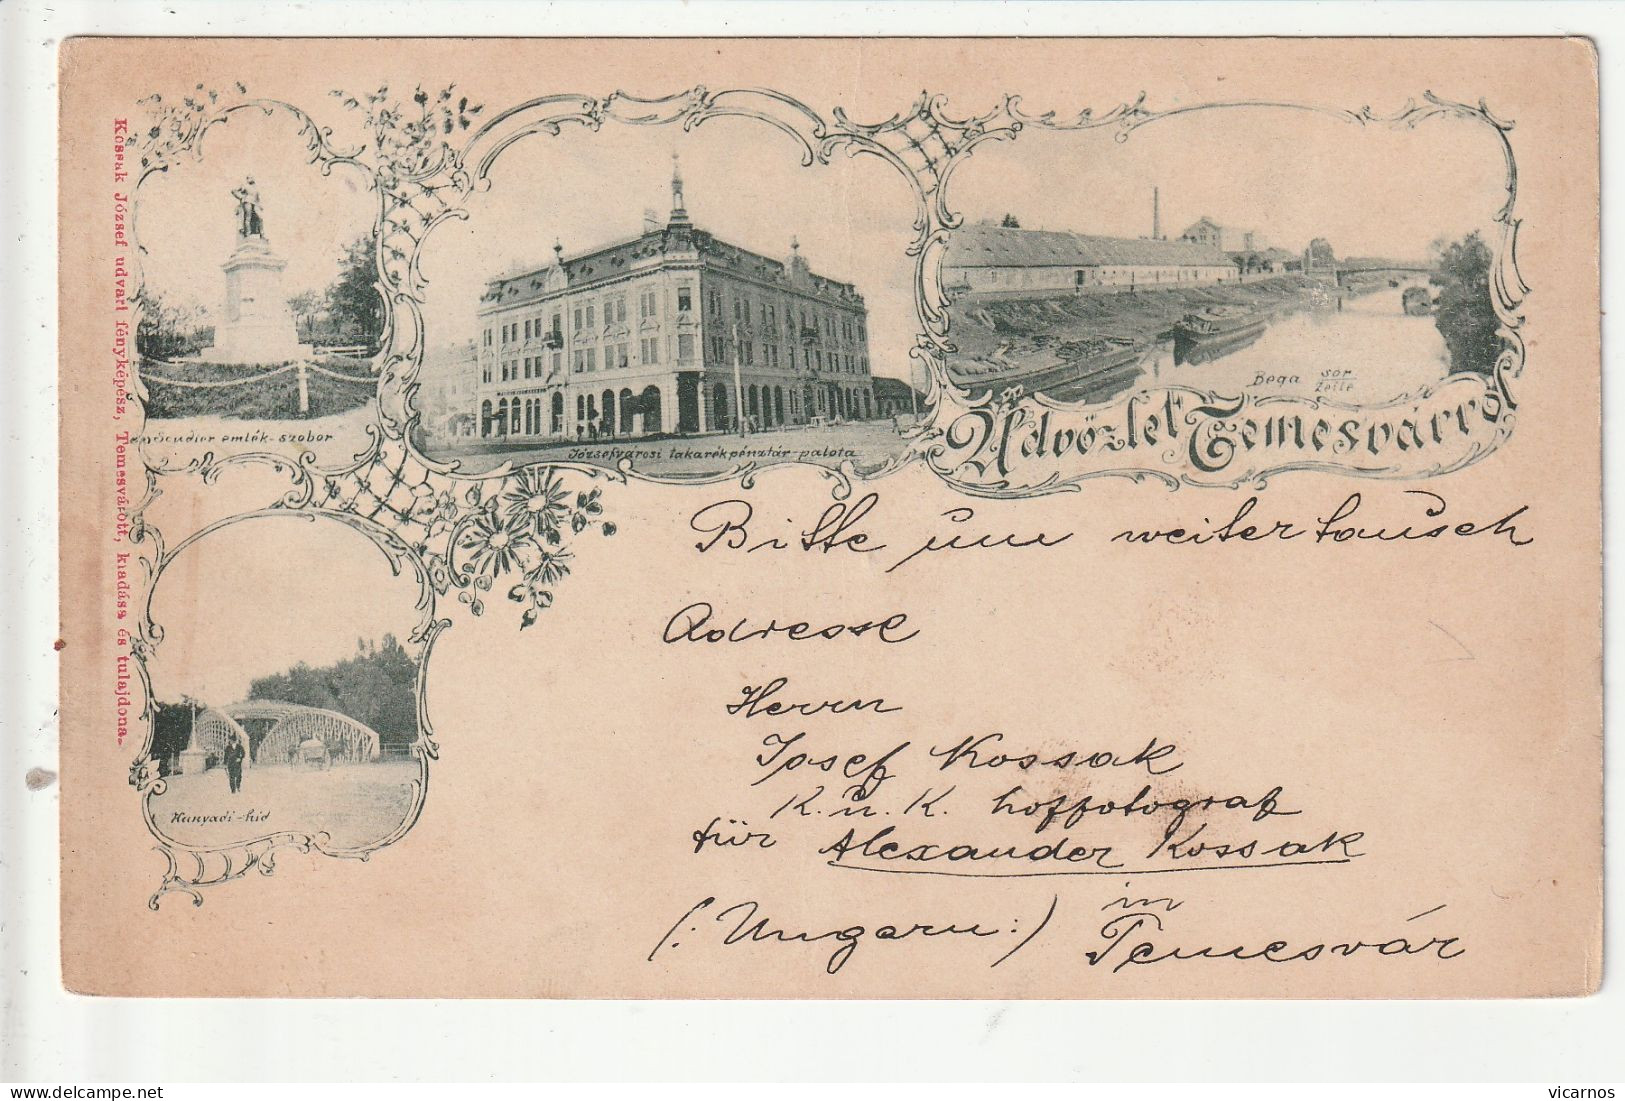 Kossak József udvari fényképész, Temesvárott, kiadása és tulajdona.
Scudier emlék-szobor
Józsefvárosi takarékpénztár-palota
Bega sor
zeile
Üdvözlet Temesvárról
Hunyadi-hid
Bitte um weitertausch
Adresse
Herrn
Josef Kossak
K. u. K. hoffotograf
für Alexander Kossak
(: Ungarn :) in
Temesvár
delcampe.net
vicarnos